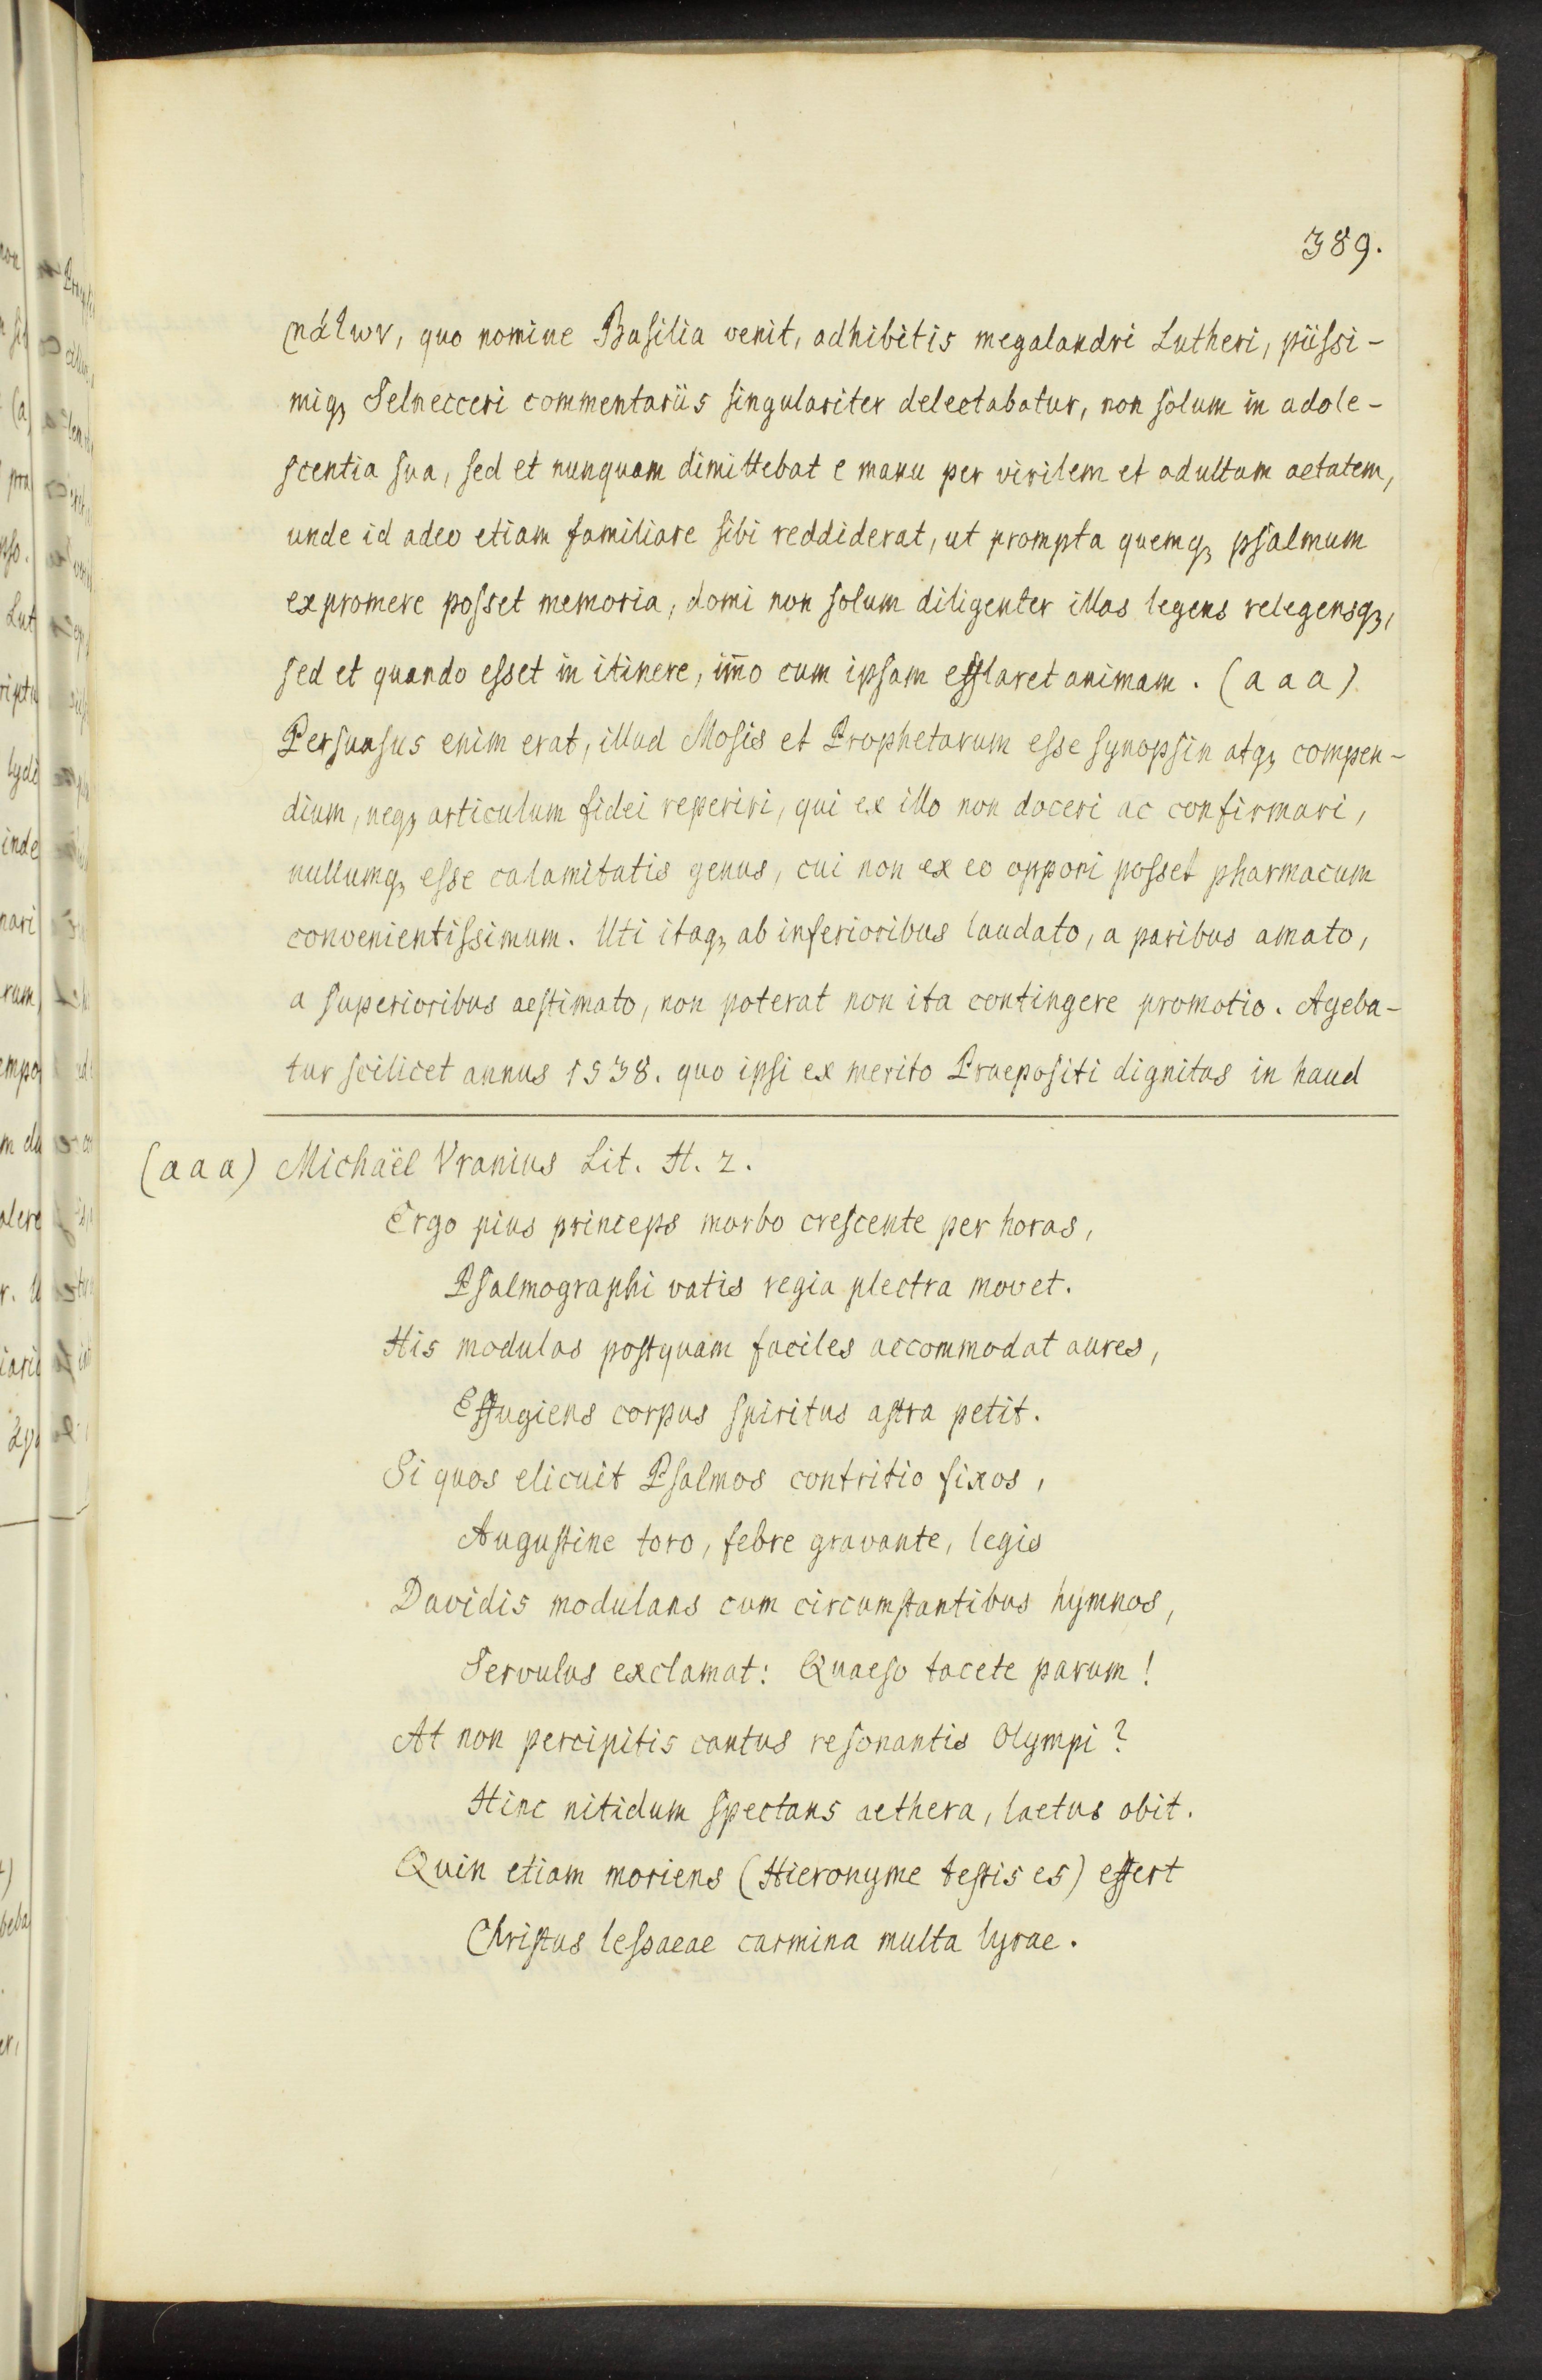 389.
quo nomine Basilia venit, adhibitis megalandri Lutheri, piissi-
miq₃ Selnecceri commentariis singulariter delectabatur, non solum in adole-
scentia sua, sed et nunquam dimittebat e manu per virilem et adultam aetatem,
unde id adeo etiam familiare sibi reddiderat, ut prompta quemq₃ psalmum
expromere posset memoria, domi non solum diligenter illas legens relegensq₃,
sed et quando esset in itinere, im̄o cum ipsam efflaret animam. (a a a)
Persuasus enim erat, illud Mosis et Prophetarum esse synopsin atq₃ compen-
dium, neq₃ articulum fidei reperiri, qui ex illo non doceri ac confirmari,
nullumq₃ esse calamitatis genus, cui non ex eo opponi posset pharmacum
convenientissimum. Uti itaq₃ ab inferioribus laudato, a paribus amato,
a superioribus aestimato, non poterat non ita contingere promotio. Ageba-
tur scilicet annus 1538. quo ipsi ex merito Praepositi dignitas in haud
(a a a) Michaël Vranius Lit. H. 2.
Ergo pius princeps morbo crescente per horas,
Psalmographi vatis regia plectra movet.
His modulas postquam faciles accommodat aures,
Effugiens corpus spiritus astra petit.
Si quos elicuit Psalmos contritio fixos,
Augustine toro, febre gravante, legis
Davidis modulans cum circumstantibus hymnos,
Servulus exclamat: Quaeso tacete parum!
At non percipitis cantus resonantis Olympi?
Hinc nitidum spectans aethera, laetus obit.
Quin etiam moriens (Hieronyme testis es) effert
Christus Iessaeae carmina multa lyrae.